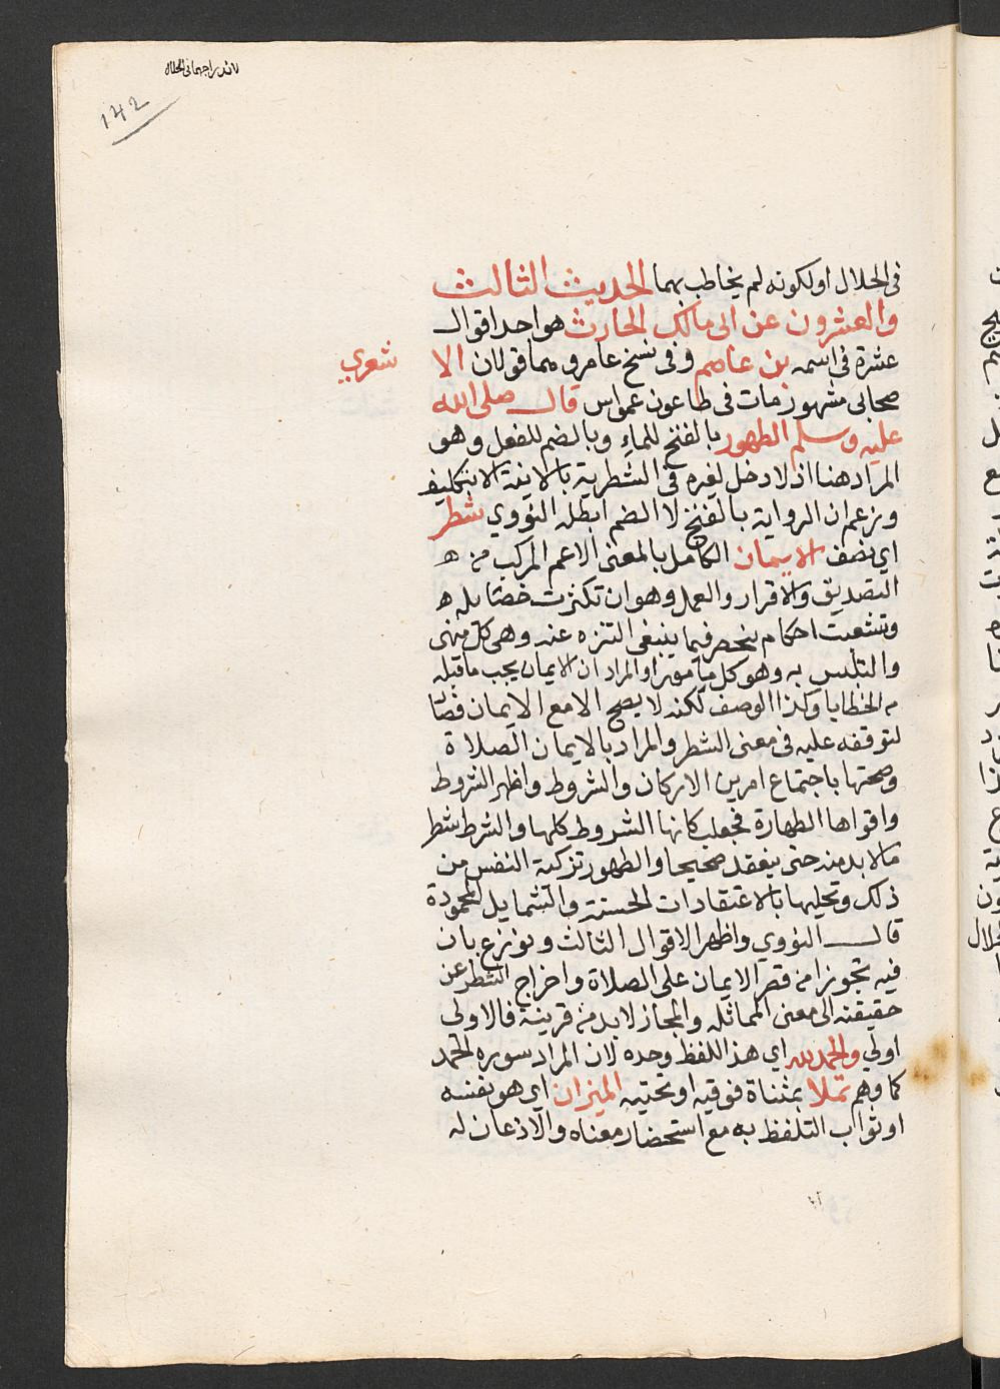 142
في الحلال او لكونه لم يخاطب بهما الحديث الثالث
والعشرون عن ابي مالك الحارث هو احد اقوال
عشرة في اسمه بن عاصم وفي نسخ عامر وهما قولان الا شعري
صحابي مشهور مات في طاعون عمواس قال صلى الله
عليه وسلم الطهور بالفتح للماء وبالضم للفعل وهو
المراد هنا اذ لا دخل لغيره في الشطرية بالاينة الا بتكليف
وزعم ان الرواية بالفتح لا الضم ابطله النووي شطر
اي نصف الايمان الكامل بالمعنى الاعم المركب من
التصديق والاقرار والعمل وهو ان تكثرت خصايله
وتشعبت احكامه ينحصر فيما ينبغي التنزه عنه وهي كل منهي
والتلبس به وهو كل مامور او المراد ان الايمان يجب ما قبله
من الخطايا وكذا الوضو لكنه لا يصح الا مع الايمان فصا
لتوقفه عليه في معنى الشطر والمراد بالايمان الصلاة
وصحتها باجتماع امرين الاركان والشروط واظهر الشروط
واقواها الطهارة فجعلت كانها الشروط كلها والشرط شطر
مالابد منه حتى ينعقد صحيحا والطهور تزكية النفس من
ذلك وتحليها بالاعتقادات الحسنة والشمايل المحمودة
قال النووي واظهر الاقوال الثالث ونوزع بان
فيه تجوزا من قصر الايمان على الصلاة واخراج الشطر عن
حقيقته الى معنى المماثله والمجاز لابد من قرينة فالاولى
اولي والحمد لله اي هذا اللفظ وحده لان المراد سوره الحمد
كما وهم تملا بمثناة فوقيه او تحتيه الميزان اي هو نفسه
او ثواب التلفظ به مع استحضار معناه والاذعان له